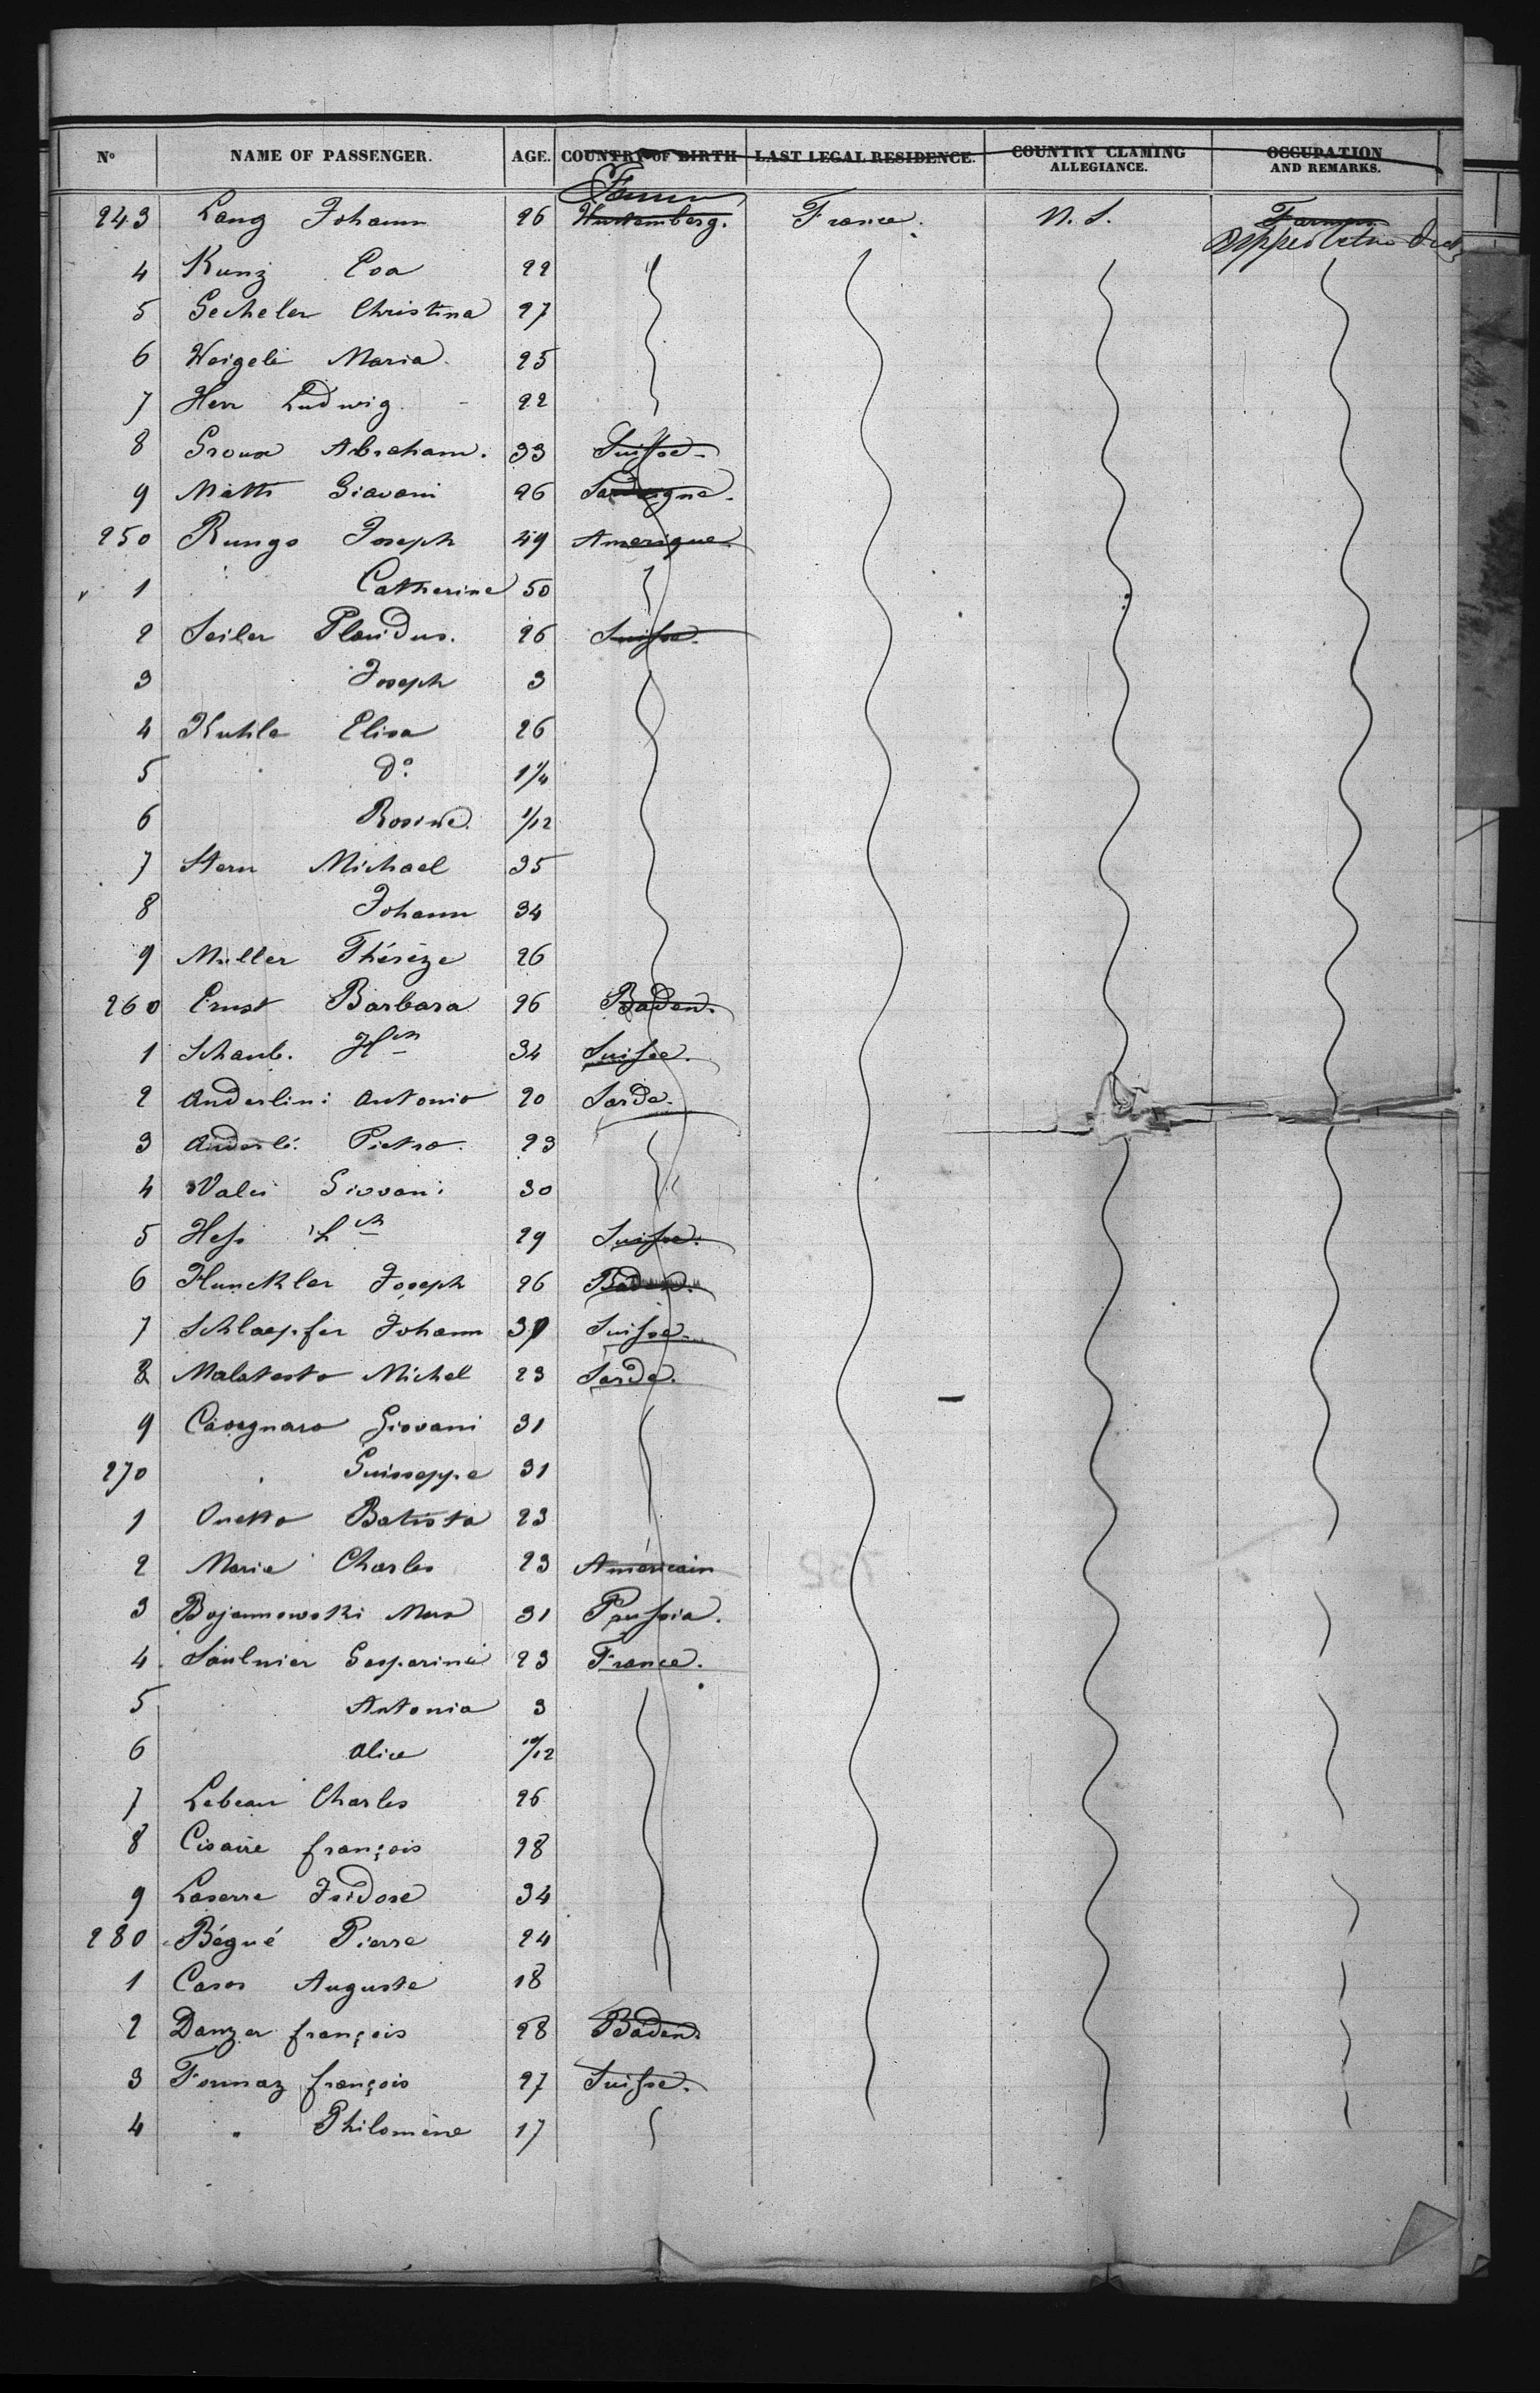 No NAME OF PASSENGER. AGE. COUNTRY OF BIRTH LAST LEGAL RESIDENCE. COUNTRY CLAMING ALLEGIANCE. OCCUPATION AND REMARKS.
243 Lang Johann 26 Wurtemberg. France. Farmer
4 Kunz Eva 22
5 Gecheler Christina 27
6 Weigele Maria 25
7 Herr Ludwig 22
8 Groux Abraham. 33 Suisse.
9 Matti Giavani 26 Sardaigne.
250 Rungo Joseph 49 Amerique
1 Catherine 50
2 Seiler Placidus. 26 Suisse.
3 Joseph 3
4 Kuhle Elisa 26
5 do. 1 1/4
6 Rosine. 1/12
7 Stern Michael 35
8 Johann 34
9 Muller Thérèze 26
260 Ernst Barbara 26 Baden.
1 Schaub. Hch 34 Suisse.
2 Anderlini Antonio 20 Sarde.
3 Pietro. 23
4 Giovani 30
5 Hess 29 Suisse.
6 Hunckler Joseph 26 Baden.
7 Schlaepfer Johann Suisse.
8 Malatesto Michel 23 Sarde.
9 Cavagnaro Giovani 31
270 Guisseppe 31
1 Onetto Batista 23
2 Marie Charles 23 Américain
3 Bojannowski Max 31 Prussia.
4 Saulnier Gasparine 23 France.
5 Antonia 3
6 Alice 10/12
7 Lebeau Charles 26
8 Cisaire françois 28
9 Laserre Isidore 34
280 Bégué Pierre 24
1 Casos Auguste 18
2 Danzer françois 28 Baden.
3 Fornaz françois 27 Suisse.
4 " Philomène 17